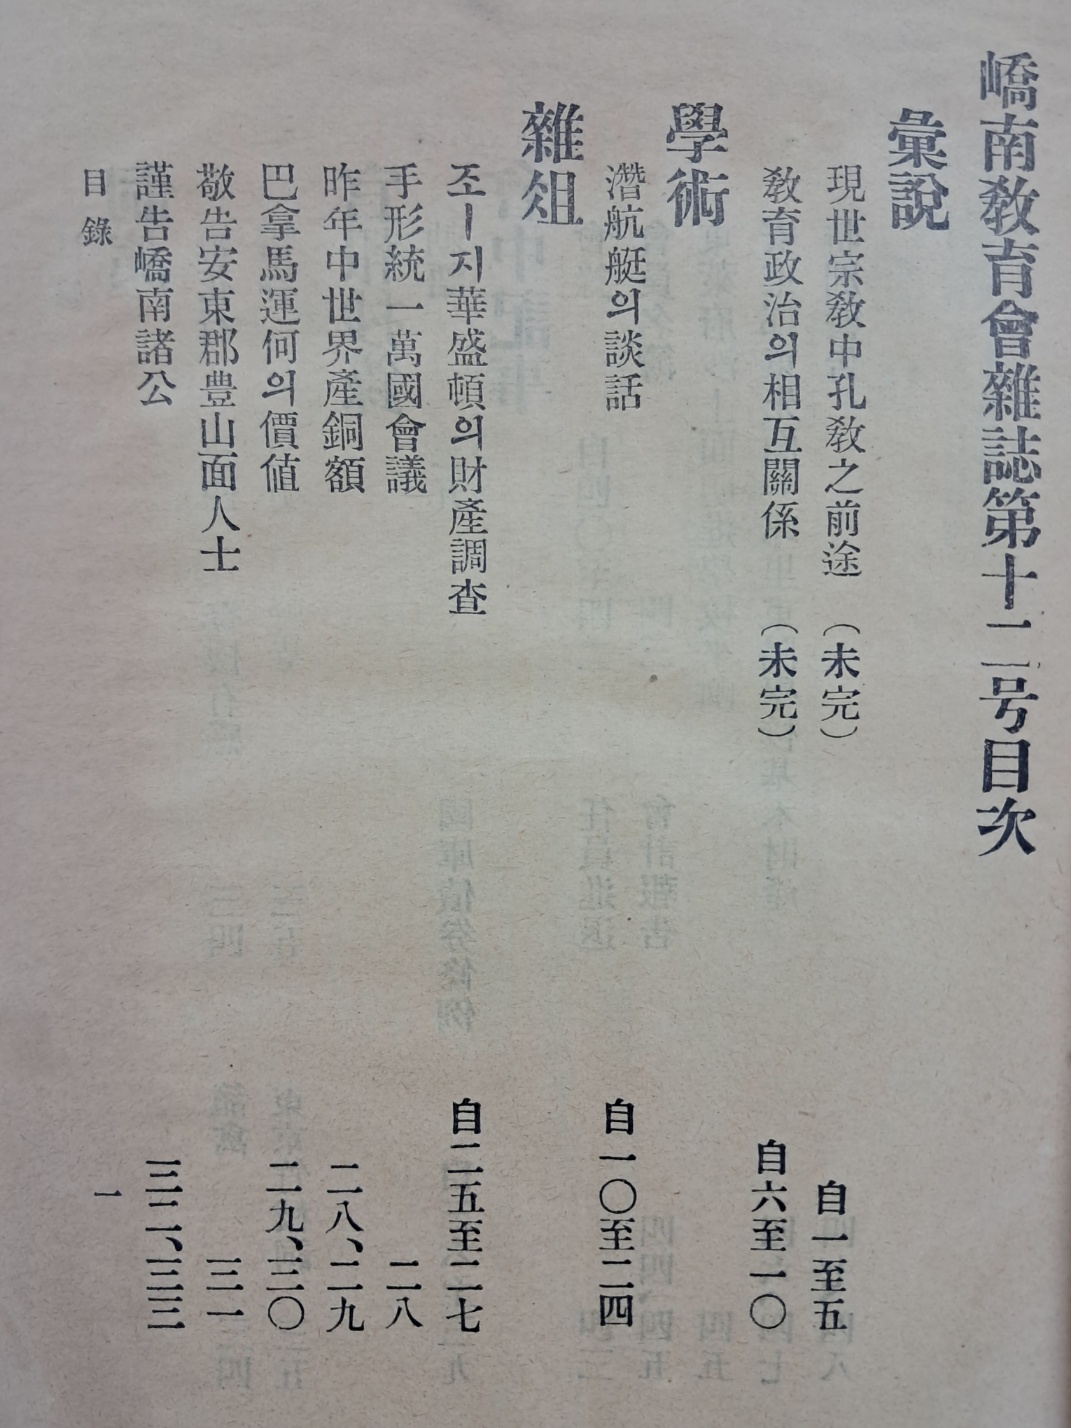 嶠南敎育會雜誌第十二号目次
彙說
現世宗敎中孔敎之前途 （未完） 自一至五
敎育政治의相互關係 （未完） 自六至一〇
學術
潛航艇의談話 自一〇至二四
雜俎
조ㅣ지華盛頓의財產調查 自二五至二七
手形統一萬國會議 二八
昨年中世界產銅額 二八、二九
巴拿馬運何의價値 二九、三〇
敬告安東郡豊山面人士 三一
謹告嶠南諸公 三二、三三
目錄 一